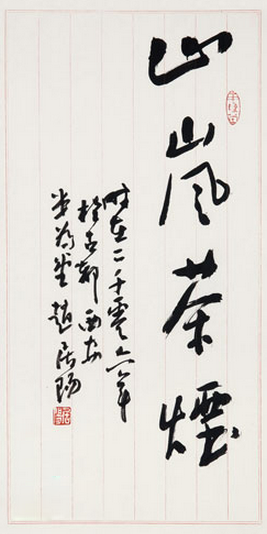 山岚茶煙
时在二千零六年
于古都西安
半为堂赵居阳